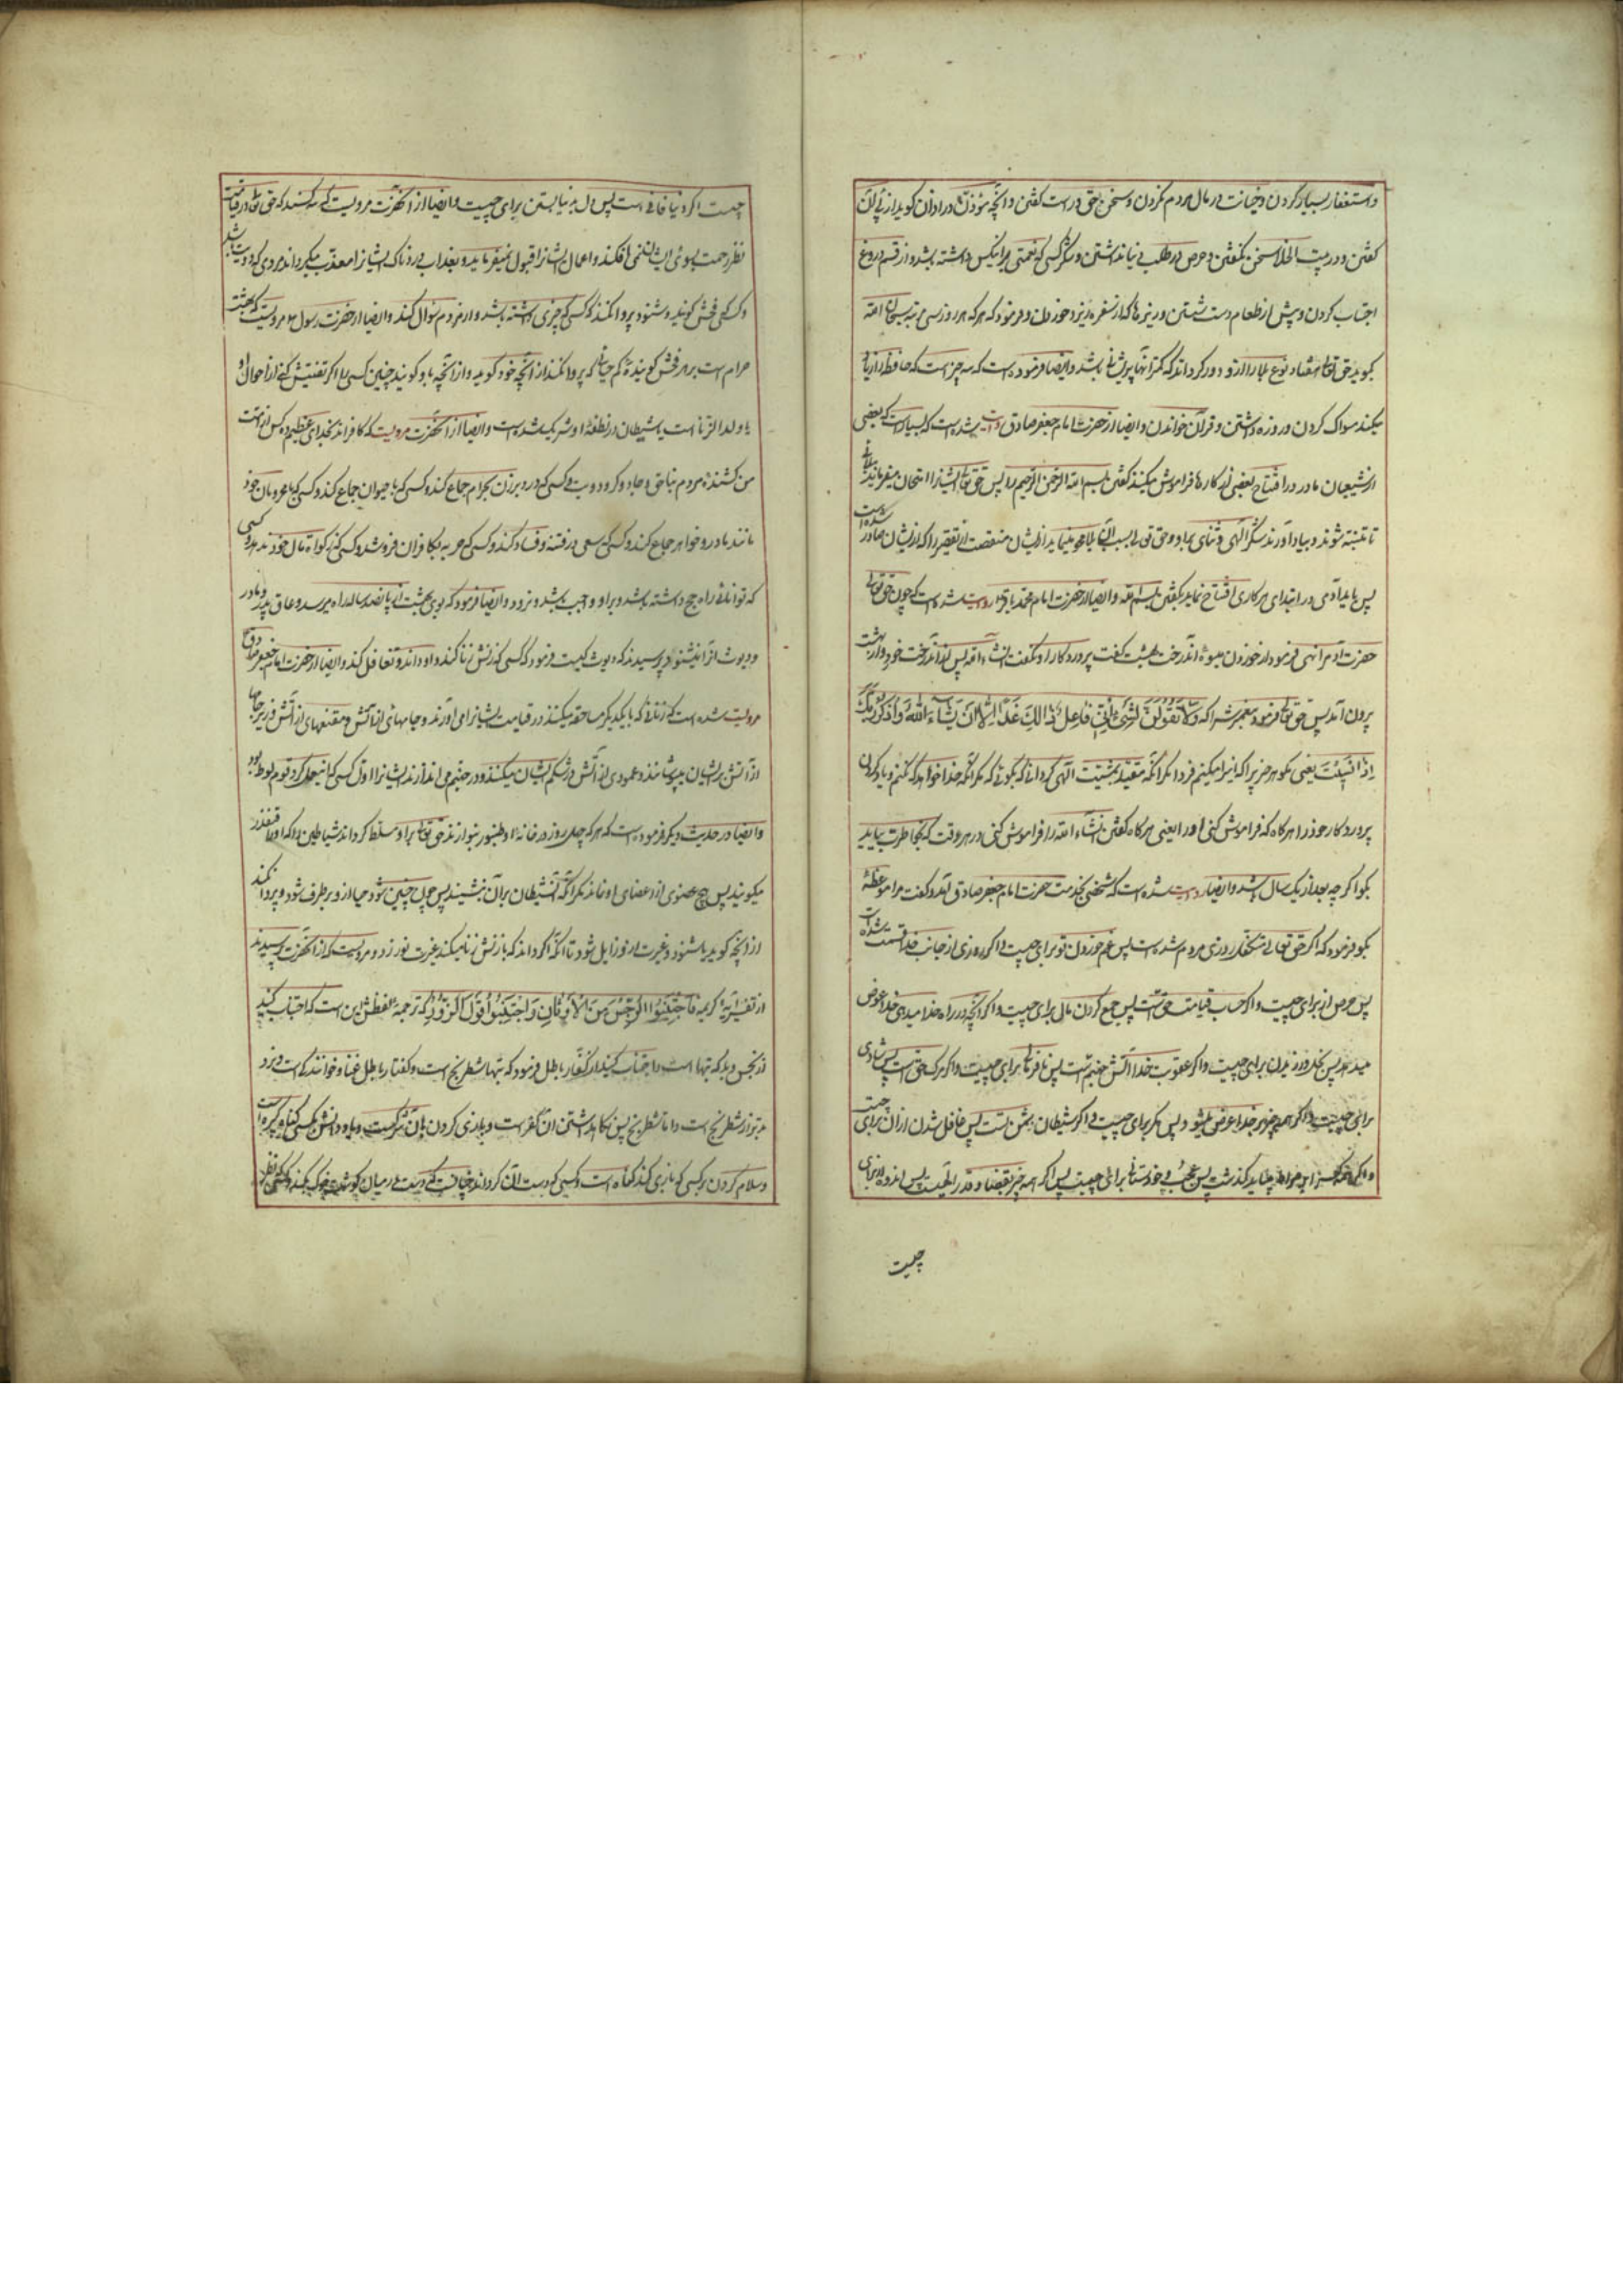 و استغفار بسیار کردن و خیانت در مال مردم نکردن و سخن حق و راست گفتن و آنچه مؤذن در اذان گوید از پی آن
گفتن و در بیت الخلا سخن نگفتن و حرص در طلب دنیا نداشتن و شکر کسی که نعمتی بر اینکس داشته باشد و از قسم دروغ
اجتناب کردن و پیش از طعام دست شستن و ریزه ها که از سفره بریزد خوردن و فرمود که هر که هر روز سی مرتبه سبحان الله
بگوید حق تعالی هفتاد نوع بلا را از و دور گرداند که کمتر آنها پریشانی باشد و ایضا فرموده است که سه چیز است که حافظه را زیاد
میکند سواک کردن و روزه داشتن و قرآن خواندن و ایضا از حضرت امام جعفر صادق روایت شده است که بسیار است که بعضی
از شیعیان ما در در افتتاح بعضی از کارها فراموش میکنند گفتن بسم الله الرحمن الرحیم را پس حق تعالی ایشانرا امتحان میفرماید ببلائی
تا متنبه شوند و بیاد آورند شکر الهی و ثنای او و حق تعالی بسبب آن بلا محو مینماید از ایشان منقصت آن تقصیر را که از ایشان صادر شده است
پس باید آدمی در ابتدای هر کاری افتتاح نماید بگفتن بسم الله و ایضا از حضرت امام محمد باقر روایت شده است که چون حق تعالی
حضرت آدم را نهی فرمود از خوردن میوه آن درخت بهشت گفت پروردگارا و نگفت انشاء الله پس از آن درخت خورد و از بهشت
بیرون آمد پس حق تعالی فرمود پیغمبرش را که وَلَا تَقُولَنَّ لِشَيْءٍ إِنِّي فَاعِلٌ ذَٰلِكَ غَدًا إِلَّا أَن يَشَاءَ اللَّهُ وَاذْكُر رَّبَّكَ
إِذَا نَسِيتَ یعنی مگو هر چیز را که اینرا میکنم فردا مگر آنکه مقید بمشیت الهی گردانی که بگوئی که مگر آنکه خدا خواهد که نکنم و یاد کن
پروردگار خود را هر گاه که فراموش کنی او را یعنی هر گاه گفتن انشاء الله را فراموش کنی در هر وقت که بخاطرت بیاید
بگو اگر چه بعد از یک سال باشد و ایضا روایت شده است که شخصی بخدمت حضرت امام جعفر صادق آمد و گفت مرا موعظه
بگو فرمود که اگر حق تعالی متکفل روزی مردم شده است پس غم خوردن تو برای چیست و اگر روزی از جانب خدا قسمت شده است
پس حرص از برای چیست و اگر حساب قیامت حق است پس جمع کردن مال برای چیست و اگر آنچه در راه خدا میدهی خدا عوض
میدهد پس بخل ورزیدن برای چیست و اگر عقوبت خدا آتش جهنم است پس نافرمانی برای چیست و اگر مرگ حق است پس شادی
برای چیست و اگر همه چیز بر خدا عرض میشود پس مکر برای چیست و اگر شیطان دشمن است پس غافل شدن از آن برای چیست
و اگر همه کس را بر صراط میباید گذشت پس عجب و خودستائی برای چیست پس اگر همه چیز بقضا و قدر الهیست پس اندوه از برای
چیست
چیست اگر دنیا فانی است پس دل بدنیا بستن برای چیست و ایضا از آنحضرت مرویست که سه کسند که حق تعالی در قیامت
نظر رحمت بسوی ایشان نمی افکند و اعمال ایشانرا قبول نمیفرماید و بعذاب دردناک ایشانرا معذب میگرداند مردی که دیوث باشد
و کسی که فحش گوید و شنود و پروا نکند و کسی که چیزی داشته باشد و از مردم سؤال کند و ایضا از حضرت رسول مرویست که بهشت
حرام است بر هر فحش گوینده کم حیائی که پروا نکند از آنچه خود گوید و از آنچه باو گویند چنین کسی را اگر تفتیش کنی از احوال او
یا ولد الزنا است یا شیطان در نطفه او شریک شده است و ایضا از آنحضرت مرویست که کافراند بخدای عظیم ده کس از امت
من کشنده مردم بناحق و جادوگر و دیوث و کسی که در دبر زن بحرام جماع کند و کسی که با حیوان جماع کند و کسی که با محرمان خود
مانند مادر و خواهر جماع کند و کسی که سعی در فتنه و فساد کند و کسی که حربه بکافران فروشد و کسی که زکوة مال خود ندهد و کسی
که توانائی راه حج داشته باشد و بر او واجب باشد و نرود و ایضا فرمود که بوی بهشت از پانصد ساله راه میرسد و عاق پدر و مادر
و دیوث آنرا نمیشنود پرسیدند که دیوث کیست فرمود که کسی که زنش زنا کند و او داند و تغافل کند و ایضا از حضرت امام جعفر صادق
مرویت شده است که زنانی که با یکدیگر مساحقه میکنند در قیامت ایشانرا می آورند و جامهای از آتش و مقنعهای از آتش و زیر جامها
از آتش بر ایشان میپوشانند و عمودی از آتش در شکم ایشان میکنند و در جهنم می اندازند ایشانرا و اول کسی که اینعمل کرد قوم لوط بود
و ایضا در حدیث دیگر فرموده است که هر که چهل روز در خانه او طنبور بنوازند حق تعالی بر او مسلط گرداند شیاطینی را که او را قفندر
میگویند پس هیچ عضوی از اعضای او نماند مگر آنکه آن شیطان بر آن بنشیند پس چون چنین شود حیا از و برطرف شود و پروا نکند
از آنچه گوید یا شنود و غیرت از و زایل شود تا آنکه اگر داند که با زنش زنا میکنند غیرت نورزد و مرویست که از آنحضرت پرسیدند
از تفسیر آیه کریمه فَاجْتَنِبُوا الرِّجْسَ مِنَ الْأَوْثَانِ وَاجْتَنِبُوا قَوْلَ الزُّورِ که ترجمه لفظش این است که اجتناب کنید
از نجس و بد که بتها است و اجتناب کنید از گفتار باطل فرمود که بتها شطرنج است و گفتار باطل غنا و خوانندگی است و نرد
بدتر از شطرنج است و اما شطرنج پس نگاهداشتن آن کفر است و بازی کردن بآن شرکست و یاد دادنش بکسی گناه کبیره است
و سلام کردن بر کسی که بازی کند گناه است و کسی که دست بآن گرداند چنانست که دست در میان گوشت خوک بکند و کسی که نظر